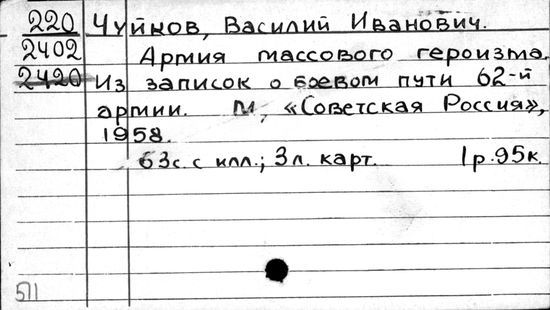 220 Чуйков, Василий Иванович.
2402 Армия массового героизма.
2420 Из записок о боевом пути 62-й
армии. М, «Советская Россия»,
1958.
63с. с илл.; 3л. карт. 1р.95к.
511